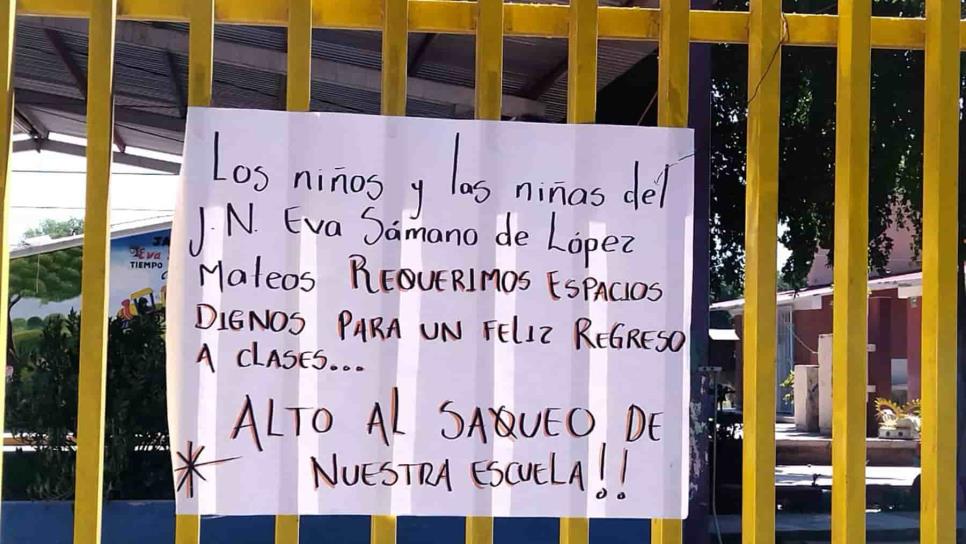 JA
Eva S
TIEMPO
Los niños y las niñas del
J.N. Eva Sámano de López
Mateos REQUERIMOS ESPACIOS
DIGNOS PARA UN FELIZ REGRESO
A CLASES...
ALTO AL SAQUEO DE
* NUESTRA ESCUELA!!